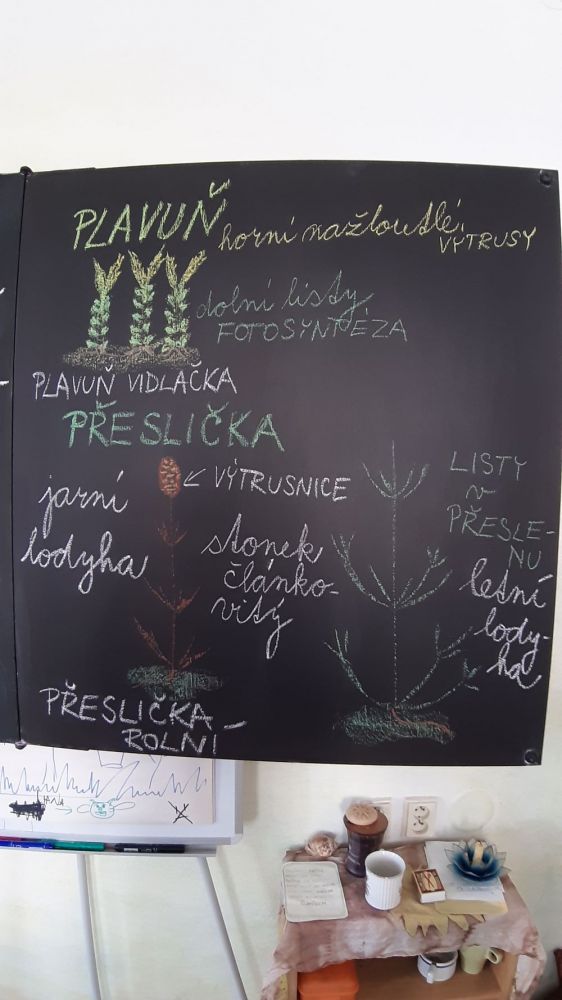 PLAVUŇ
horní nažloutlé
VÝTRUSY
dolní listy
FOTOSYNTÉZA
PLAVUŇ VIDLAČKA
PŘESLIČKA
jarní
lodyha
VÝTRUSNICE
stonek
článko-
vitý
LISTY
v
PŘESLE-
NU
letní
lody-
ha
PŘESLIČKA
ROLNÍ
HANA